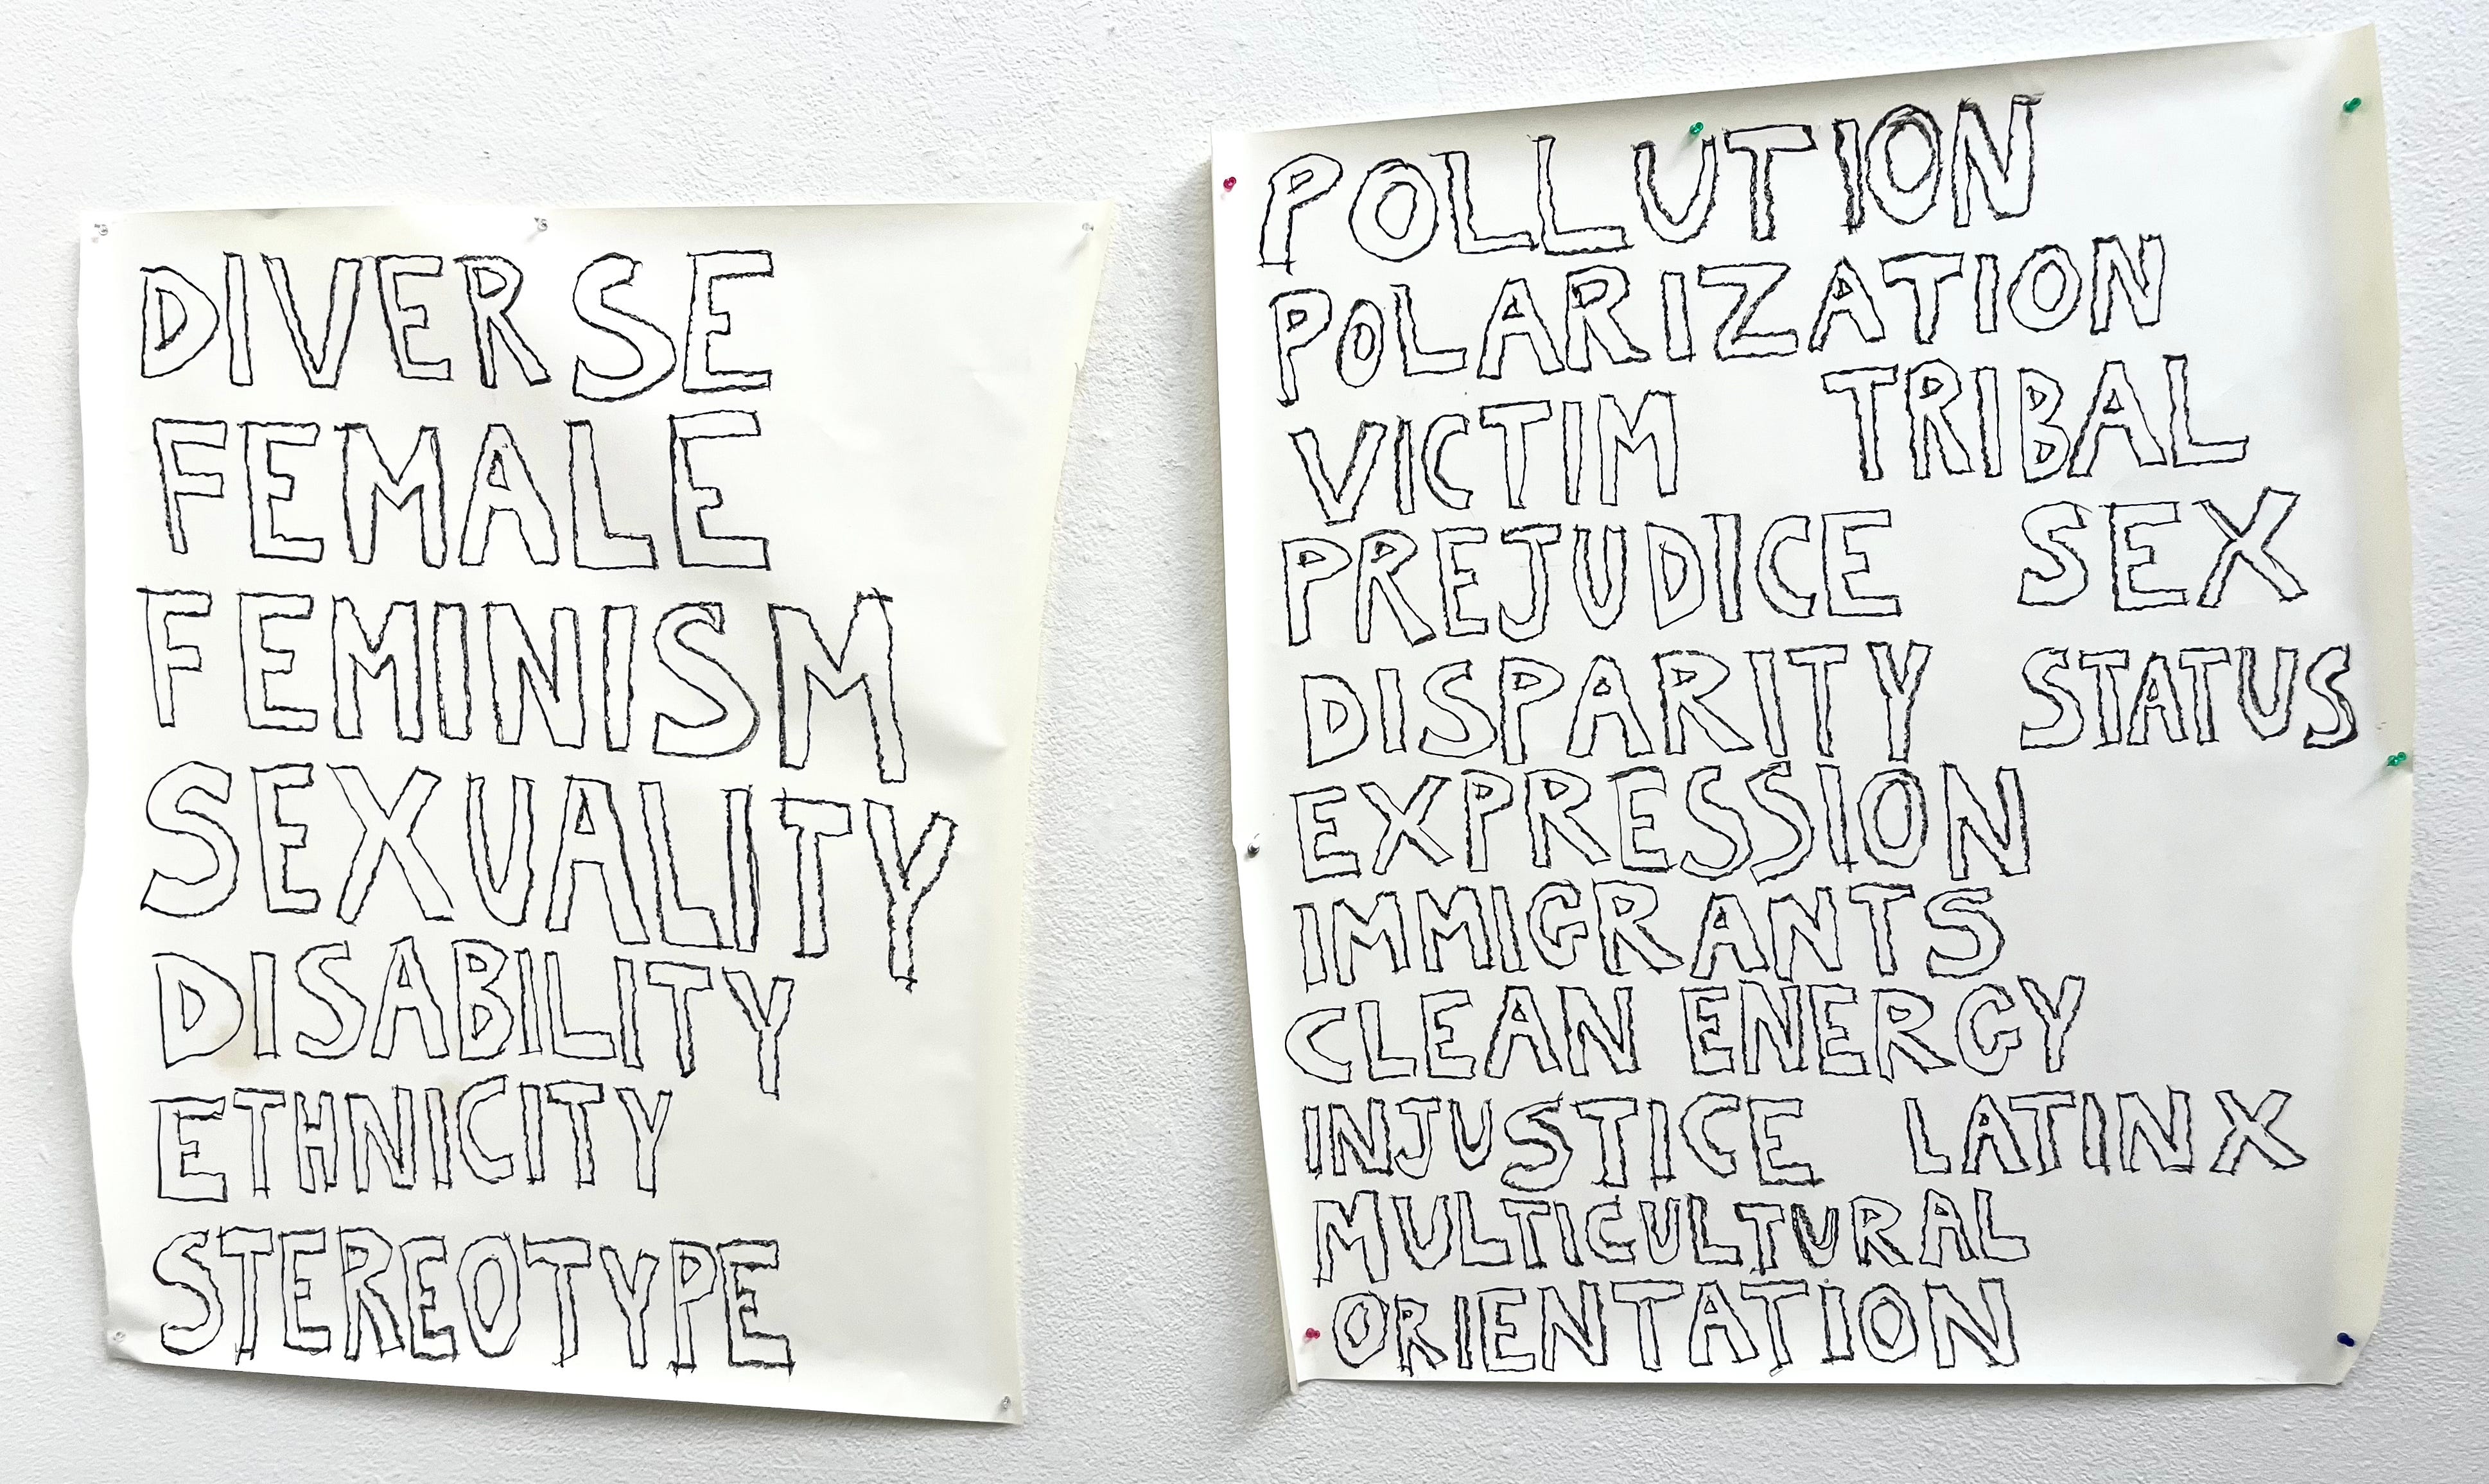 DIVERSE
FEMALE
FEMINISM
SEXUALITY
DISABILITY
ETHNICITY
STEREOTYPE
POLLUTION
POLARIZATION
VICTIM TRIBAL
PREJUDICE SEX
DISPARITY STATUS
EXPRESSION
IMMIGRANTS
CLEAN ENERGY
INJUSTICE LATINX
MULTICULTURAL
ORIENTATION